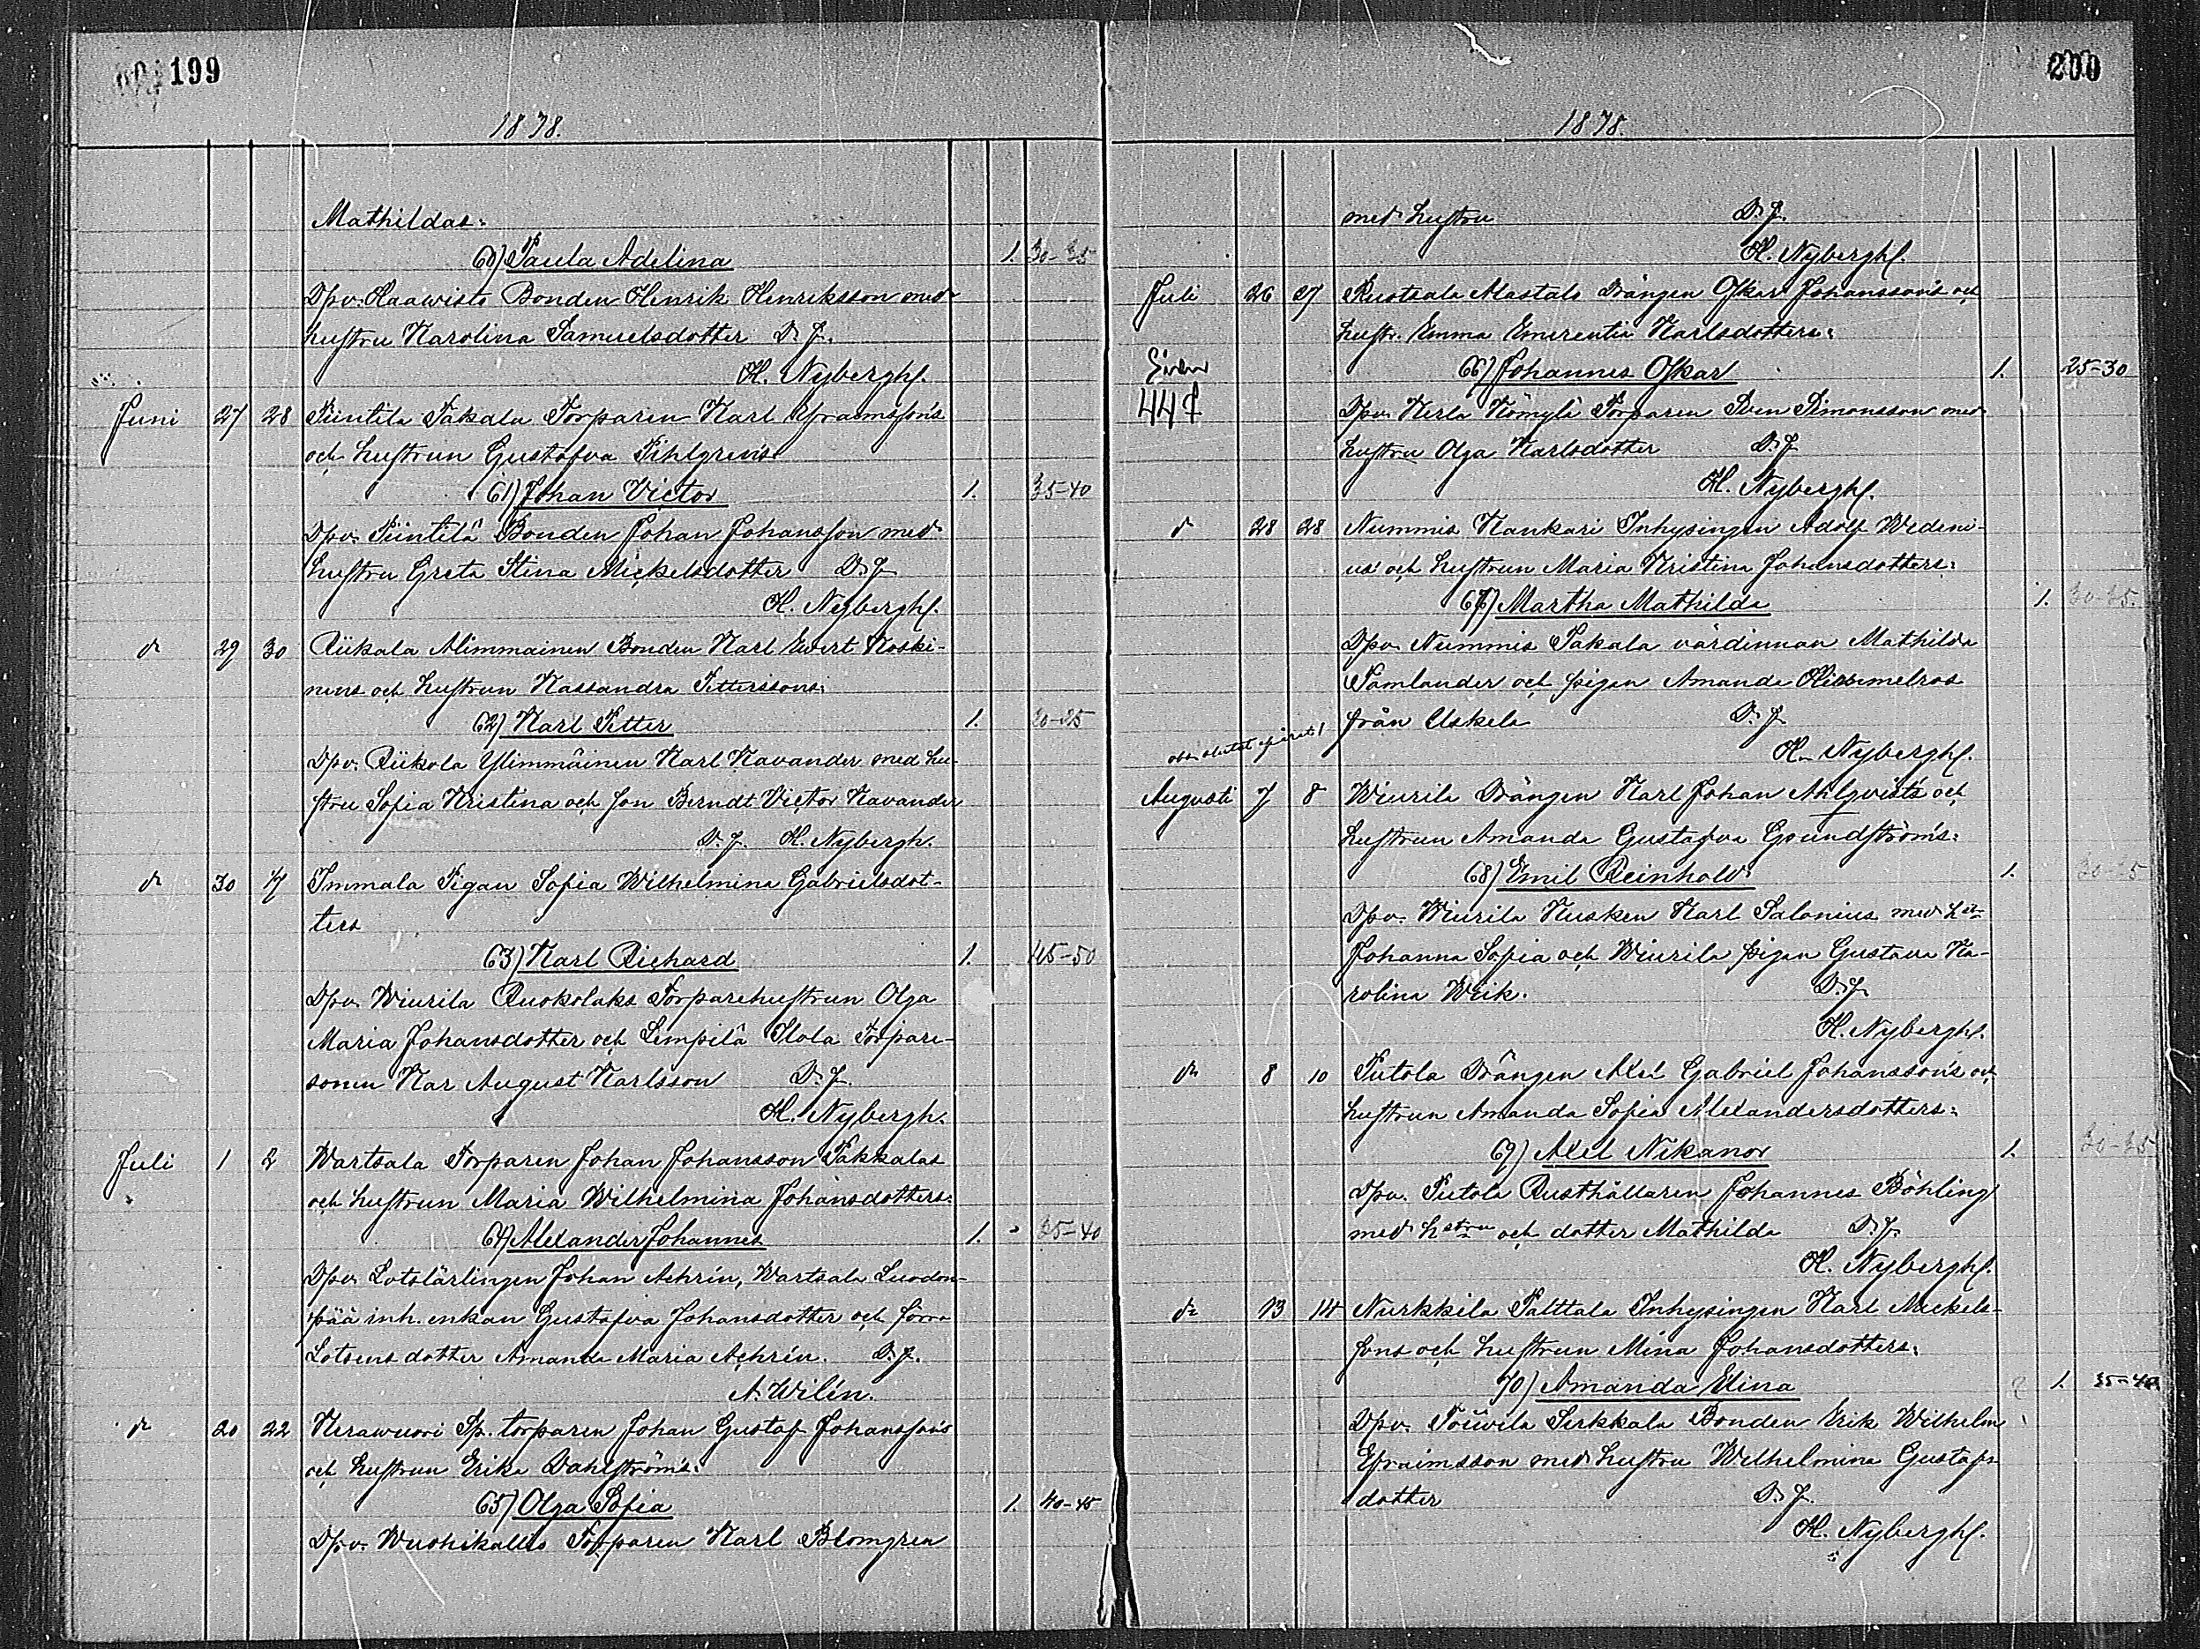 199
1878.
Mathildas:
60) Paula Adelina 1. 30-35
Dpv. Haawisto Bonden Henrik Henriksson med
hustru Karolina Samuelsdotter D. J.
H. Nybergh.
Juni 27 28 Piintila Takala Torparen Karl Efraimssons
och hustrun Gustafva Pihlgrens
61) Johan Victor 1. 35-40
Dpv. Piintilä Bonden Johan Johansson med
hustru Greta Stina Mickelsdotter D. J.
H. Nybergh.
d 29 30 Riikala Alimmainen Bonden Karl Evert Koski-
nens och hustrun Kassandra Petterssons:
62) Karl Petter 1. 20-25
Dpv. Riikola Ylimmäinen Karl Navander med hu-
stru Sofia Kristina och son Berndt Victor Navander
D. J. H. Nybergh.
d 30 1/7 Immala Pigan Sofia Wilhelmina Gabrielsdot-
ters
63) Karl Richard 1. 45-50
Dpv. Wiurila Ruokolaks Torparehustrun Olga
Maria Johansdotter och Lempilä Ilola Torpare-
sonen Kar August Karlsson D. J.
H. Nybergh.
Juli 1 2 Wartsala Torparen Johan Johansson Pakkalas
och hustrun Maria Wilhelmina Johansdotters:
64) Alexander Johannes 1. 35-40
Dpv. Lotslärlingen Johan Achrén, Wartsala Luodon-
pää inh. enkan Gustafva Johansdotter och förra
Lotsens dotter Amanda Maria Achrén. D. J.
A. Wilén.
d 20 22 Kerawuori Sp. torparen Johan Gustaf Johanssons
och hustrun Erika Dahlströms:
65) Olga Sofia 1. 40-45
Dpv. Wuohikallio Torparen Karl Blomgren
200
1878.
med hustru D. J.
H. Nybergh.
Juli 26 27 Ruotsala Alastalo Drängen Oskar Johanssons och
hustr. Emma Emerentia Karlsdotters:
66) Johannes Oskar 1. 25-30
447 Dpv. Kerla Kömylä Torparen Sven Simonsson med
hustru Olga Karlsdotter D. J.
H. Nybergh.
d 28 28 Nummis Kankari Inhysingen Adolf Wedeni-
us och hustrun Maria Kristina Johansdotters:
67) Martha Mathilda 1. 30-35.
Dpv. Nummis Takala värdinnan Mathilda
Samlander och pigan Amanda
från Uskela D. J.
H. Nybergh.
Augusti 7 8 Wiurila Drängen Karl Johan Ahlqvists och
hustrun Amanda Gustafva Grundströms:
68) Emil Reinhold 1. 30-35
Dpv. Wiurila Kusken Karl Salonius med
Johanna Sofia och Wiurila pigan Gustava Ka-
rolina Wiik. D. J.
H. Nybergh.
d 8 10 Putola Drängen Axel Gabriel Johanssons och
hustrun Amanda Sofia Alexandersdotters:
69) Axel Nikanor 1. 30-35
Dpv. Putola Rusthållaren Johannes Böhling
med hstru och dotter Mathilda D. J.
H. Nybergh.
d 13 14 Nurkkila Palttala Inhysingen Karl Mickels-
sons och hustrun Mina Johansdotters:
70) Amanda Elina 1. 35-40
Dpv. Touwila Sirkkala Bonden Erik Wilhelm
Efraimsson med hustru Wilhelmina Gustafs-
dotter D. J.
H. Nybergh.